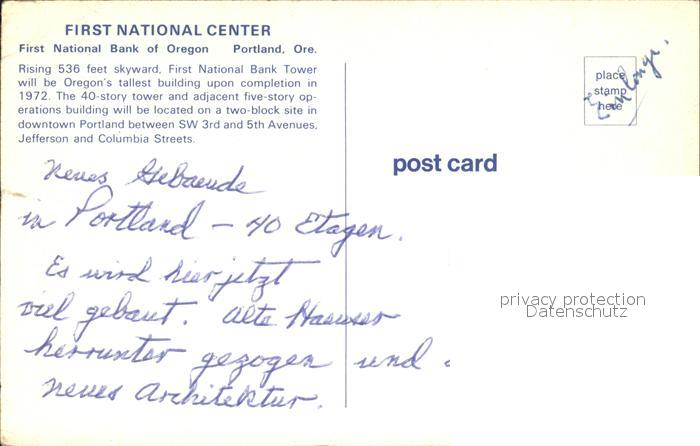 FIRST NATIONAL CENTER
First National Bank of Oregon Portland, Ore.
Rising 536 feet skyward, First National Bank Tower
will be Oregon's tallest building upon completion in
1972. The 40-story tower and adjacent five-story op-
erations building will be located on a two-block site in
downtown Portland between SW 3rd and 5th Avenues,
Jefferson and Columbia Streets.
place
stamp
here
post card
Neues Gebaende
in Portland - 40 Etagen.
Es wird hier jetzt
viel gebaut. Alte Haeuser
herrunter gezogen und
neues Architektur.
privacy protection
Datenschutz